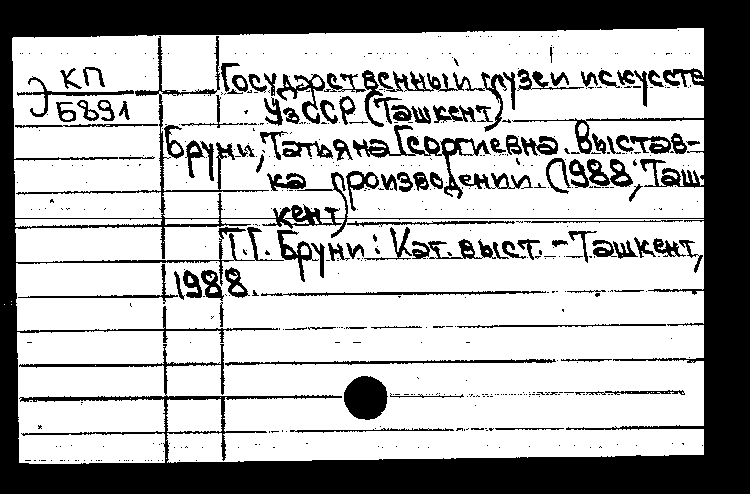 Э КП
Б891
Государственный музей искусств
УзССР (Ташкент)
Бруни, Татьяна Георгиевна. Выстав-
ка произведений. (1988; Таш-
кент)
Т.Г. Бруни: Кат. выст. - Ташкент,
1988.